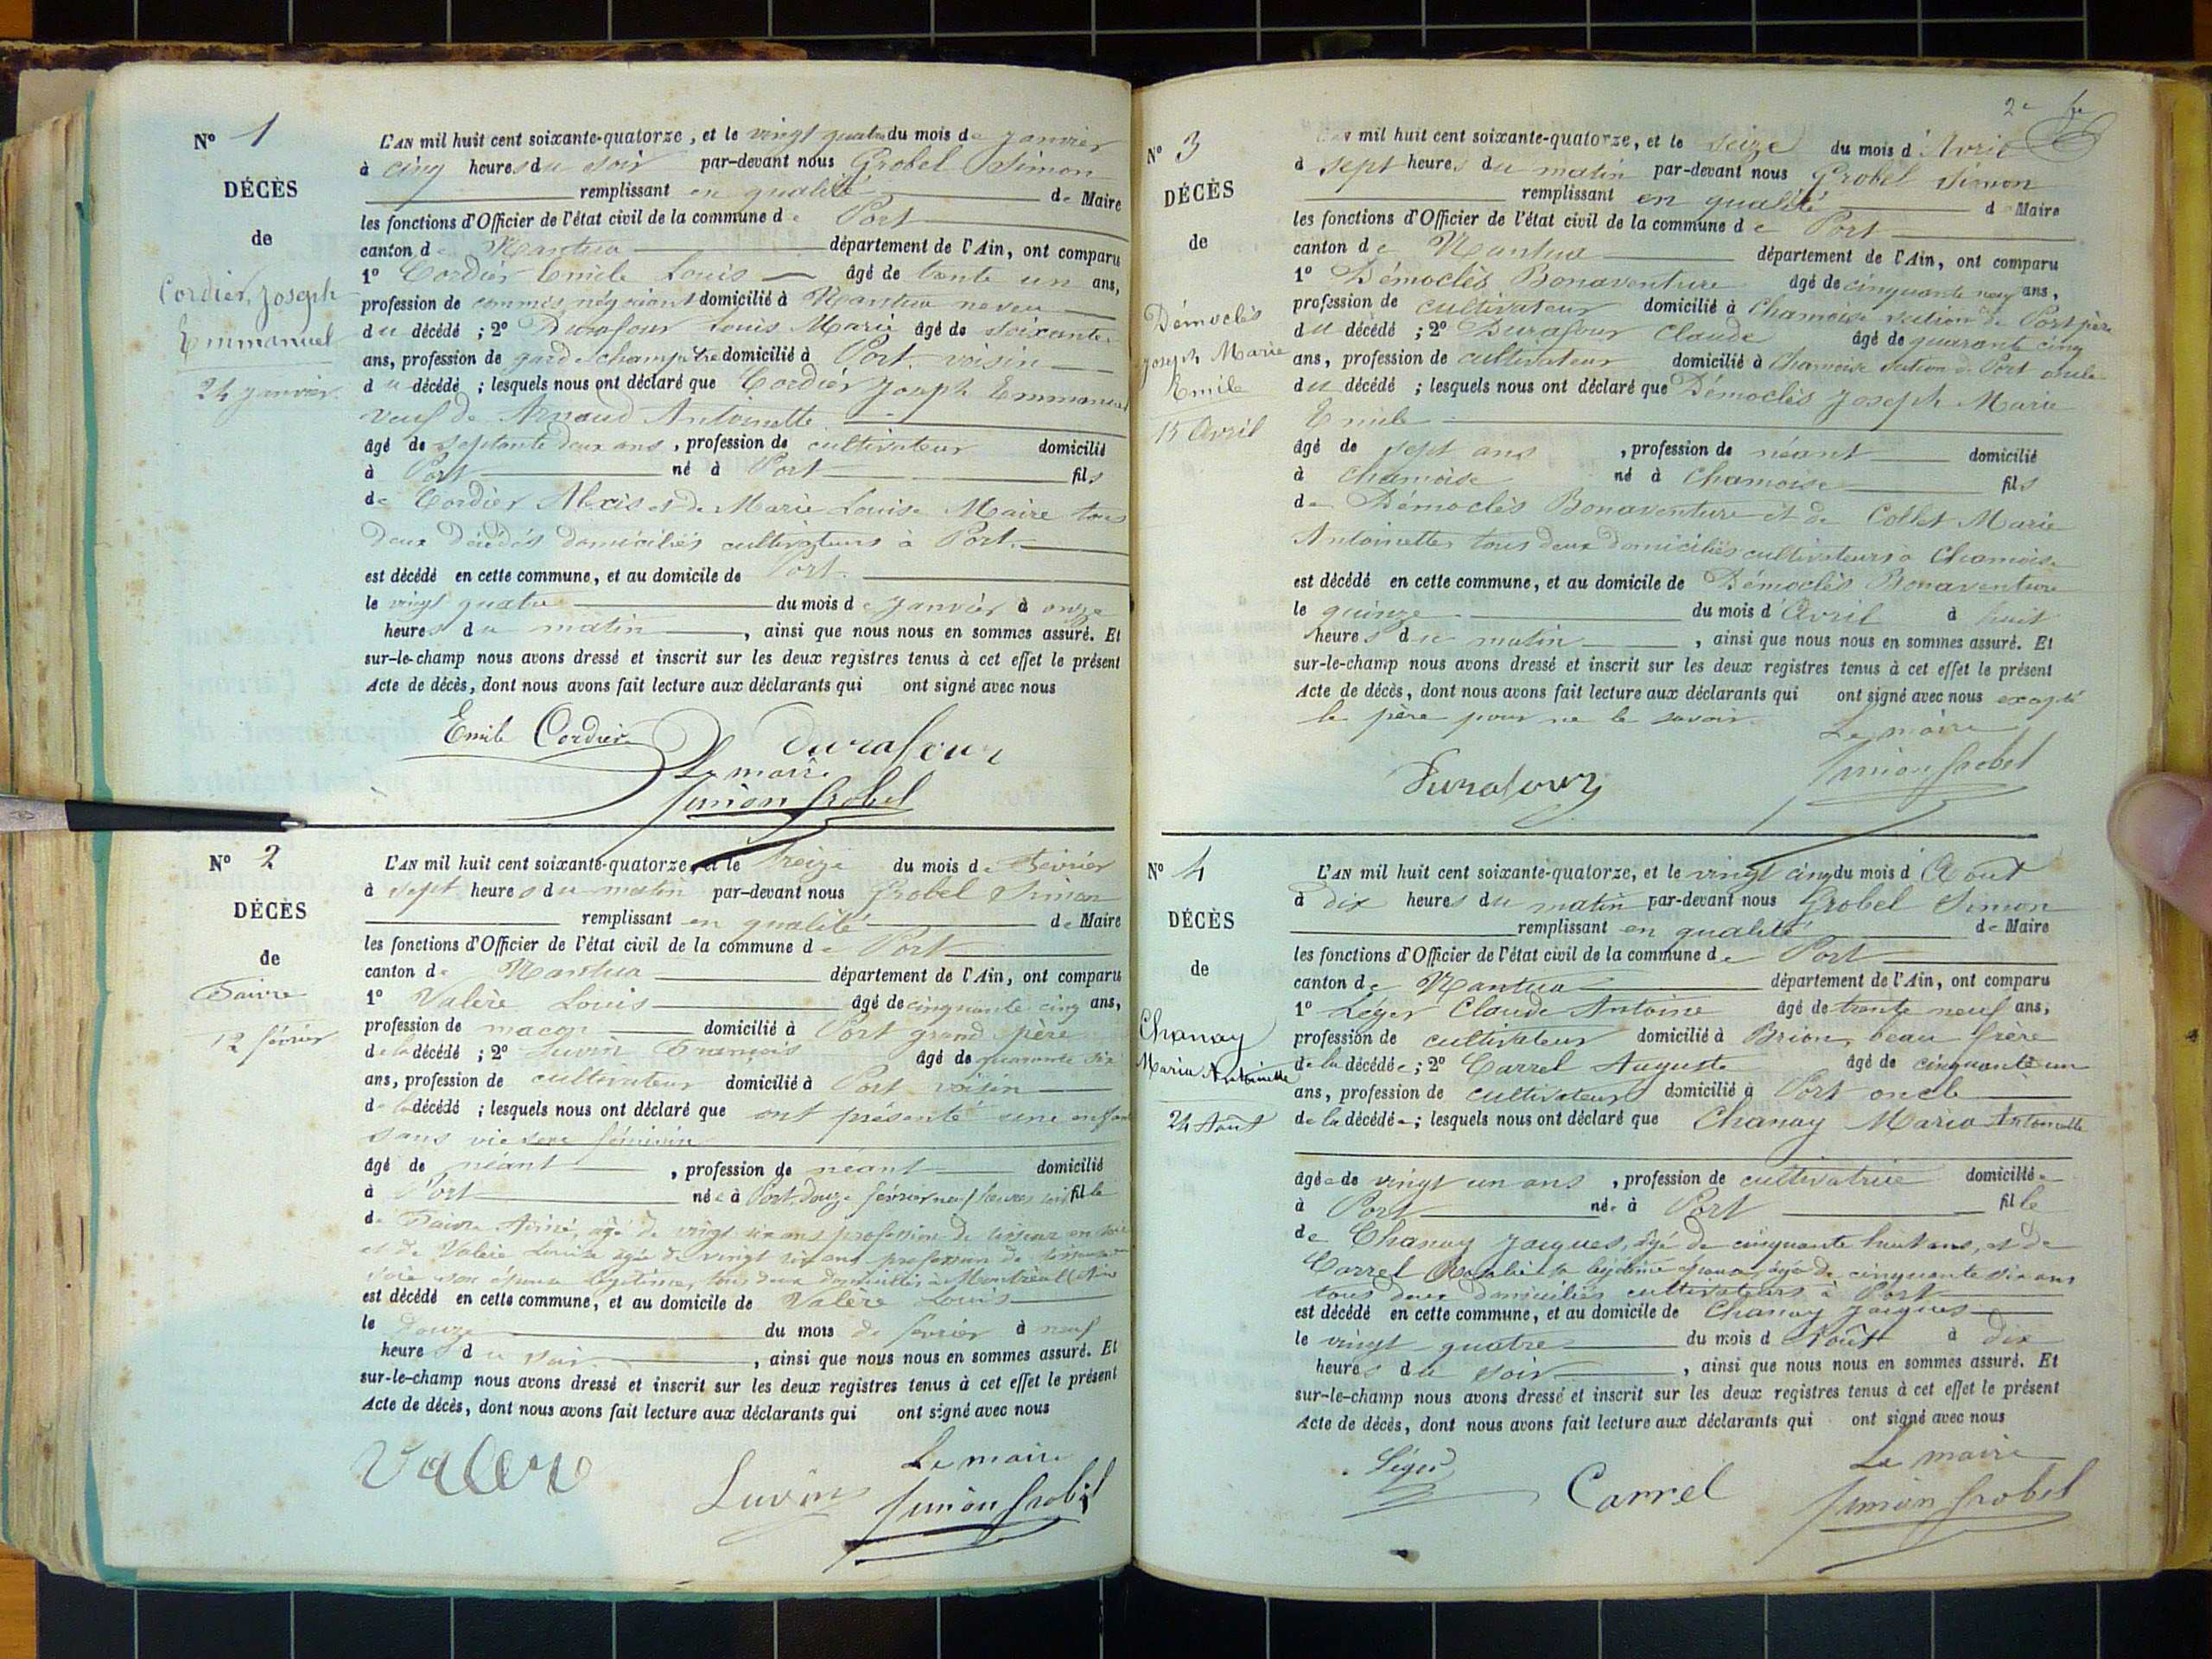 N° 1
DÉCÈS
de
Cordier, Joseph
Emmanuel
24 janvier.
L'AN mil huit cent soixante-quatorze, et le vingt quatre du mois de janvier
à cinq heures du soir par-devant nous Grobel Simon
remplissant en qualité de Maire
les fonctions d'Officier de l'état civil de la commune de Port
canton de Nantua département de l'Ain, ont comparu
1° Cordier Emile Louis âgé de trente un ans,
profession de commis négociant domicilié à Nantua neveu
du décédé ; 2° Durafour Louis Marie âgé de soixante
ans, profession de garde champêtre domicilié à Port voisin
du décédé ; lesquels nous ont déclaré que Cordier Joseph Emmanuel
veuf de Arnaud Antoinette
âgé de septante deux ans, profession de cultivateur domicilié
à Port né à Port fils
de Cordier Alexis et de Marie Louise Maire tous
deux décédés domiciliés cultivateurs à Port.
est décédé en cette commune, et au domicile de Port.
le vingt quatre du mois de janvier à onze
heures du matin, ainsi que nous nous en sommes assuré. Et
sur-le-champ nous avons dressé et inscrit sur les deux registres tenus à cet effet le présent
Acte de décès, dont nous avons fait lecture aux déclarants qui ont signé avec nous
Emile Cordier Durafour
Le maire
Simon Grobel
N° 2
DÉCÈS
de
Faivre
12 février
L'AN mil huit cent soixante-quatorze, et le treize du mois de Février
à sept heures du matin par-devant nous Grobel Simon
remplissant en qualité de Maire
les fonctions d'Officier de l'état civil de la commune de Port
canton de Nantua département de l'Ain, ont comparu
1° Valère Louis âgé de cinquante cinq ans,
profession de maçon domicilié à Port grand père
de la décédé ; 2° Luvin François âgé de quarante six
ans, profession de cultivateur domicilié à Port voisin
de la décédé ; lesquels nous ont déclaré que ont présenté une enfant
sans vie sexe féminin
âgé de néant, profession de néant domicilié
à Port née à Port douze février neuf heures soir fille
de Faivre Aimé, âgé de vingt six ans profession de tisseur en soie
et de Valère Louise âgée de vingt six ans profession de tisseuse en
soie son épouse légitime, tous deux domiciliés à Montréal (Ain
est décédé en cette commune, et au domicile de Valère Louis
le douze du mois de février à neuf
heures du soir, ainsi que nous nous en sommes assuré. Et
sur-le-champ nous avons dressé et inscrit sur les deux registres tenus à cet effet le présent
Acte de décès, dont nous avons fait lecture aux déclarants qui ont signé avec nous
Valere Luvin Le maire
Simon Grobel
2e
N° 3
DÉCÈS
de
Démoclès
Joseph Marie
Emile
15 Avril
L'AN mil huit cent soixante-quatorze, et le seize du mois d'Avril
à sept heures du matin par-devant nous Grobel Simon
remplissant en qualité de Maire
les fonctions d'Officier de l'état civil de la commune de Port
canton de Nantua département de l'Ain, ont comparu
1° Démoclès Bonaventure âgé de cinquante neuf ans,
profession de cultivateur domicilié à Chamoise section de Port père
du décédé ; 2° Durafour Claude âgé de quarante cinq
ans, profession de cultivateur domicilié à Chamoise section de Port oncle
du décédé ; lesquels nous ont déclaré que Démoclès Joseph Marie
Emile
âgé de sept ans, profession de néant domicilié
à Chamoise né à Chamoise fils
de Démoclès Bonaventure et de Collet Marie
Antoinette, tous deux domiciliés cultivateurs à Chamoise
est décédé en cette commune, et au domicile de Démoclès Bonaventure
le quinze du mois d'Avril à huit
heures du matin, ainsi que nous nous en sommes assuré. Et
sur-le-champ nous avons dressé et inscrit sur les deux registres tenus à cet effet le présent
Acte de décès, dont nous avons fait lecture aux déclarants qui ont signé avec nous excepté
le père pour ne le savoir.
Le maire
Durafour Simon Grobel
N° 4
DÉCÈS
de
Chanay
Maria Antoinette
24 Août
L'AN mil huit cent soixante-quatorze, et le vingt cinq du mois d'Août
à dix heures du matin par-devant nous Grobel Simon
remplissant en qualité de Maire
les fonctions d'Officier de l'état civil de la commune de Port
canton de Nantua département de l'Ain, ont comparu
1° Léger Claude Antoine âgé de trente neuf ans,
profession de cultivateur domicilié à Brion, beau frère
de la décédée ; 2° Carrel Auguste âgé de cinquante un
ans, profession de cultivateur domicilié à Port oncle
de la décédée ; lesquels nous ont déclaré que Chanay Maria Antoinette
âgée de vingt un ans, profession de cultivatrice domiciliée
à Port née à Port fille
de Chanay Jacques, âgé de cinquante huit ans, et de
Carrel Rosalie sa légitime épouse, âgée de cinquante six ans
tous deux domiciliés cultivateurs à Port
est décédé en cette commune, et au domicile de Chanay Jacques
le vingt quatre du mois d'Août à dix
heures du soir, ainsi que nous nous en sommes assuré. Et
sur-le-champ nous avons dressé et inscrit sur les deux registres tenus à cet effet le présent
Acte de décès, dont nous avons fait lecture aux déclarants qui ont signé avec nous
Léger Carrel Le maire
Simon Grobel